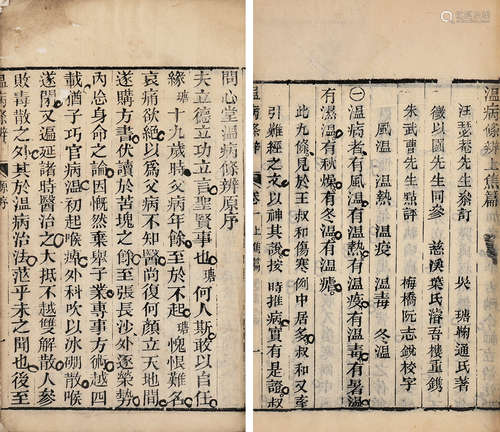 問心堂溫病條辨原序
夫立德立功立言聖賢事也瑭何人斯敢以自任
緣瑭十九歲時父病年餘至於不起瑭愧恨難名
哀痛欲絕以爲父病不知醫尚復何顏立天地間
遂購方書伏讀於苦塊之餘至張長沙外逐榮勢
內忘身命之論因慨然棄舉子業專事方術越四
載猶子巧官病溫初起喉痹外科吹以冰硼散喉
遂閉又遍延諸時醫治之大抵不越雙解散人參
敗毒散之外其於溫病治法茫乎未之聞也後至
溫病條辨 原序
溫病條辨上焦篇
汪瑟菴先生叅訂 吳瑭鞠通氏著
徵以園先生同參 慈溪葉氏濬吾樓重鐫
朱武曹先生點評 梅橋阮志銳校字
風溫 溫熱 溫疫 溫毒 冬溫
㊀溫病者有風溫有溫熱有溫疫有溫毒有暑溫
有濕溫有秋燥有冬溫有溫瘧
此九條見於王叔和傷寒例中居多叔和又牽
引難經之文以神其說按時推病實有是證叔
溫病條辨 卷一 上焦篇 一